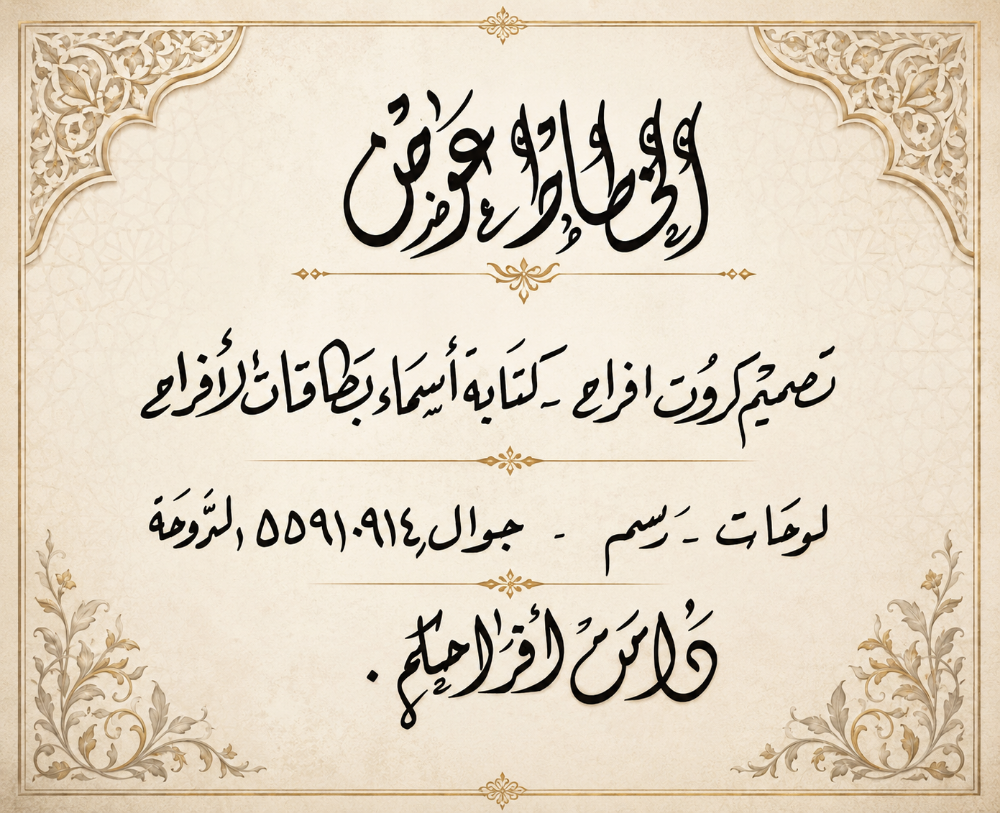 الخطاط عوض
تصميم كروت افراح - كتابة أسماء بطاقات الأفراح
لوحات - رسم - جوال ٥٥٩١٠٩١٤ الدَّوحَة
دامت أفراحكم .